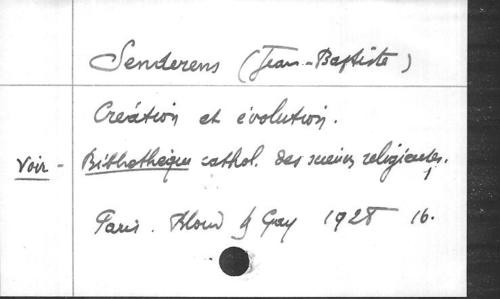 Senderens (Jean-Baptiste)
Création et évolution.
Voir - Bibliothèque cathol. des sciences religieuses.
Paris. Bloud & Gay 1928 16.